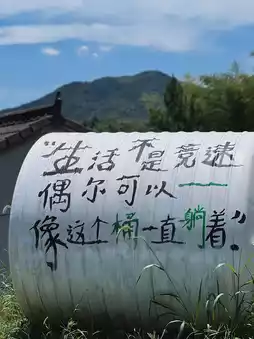 “生活不是竞速
偶尔可以一
像这个桶一直躺着”